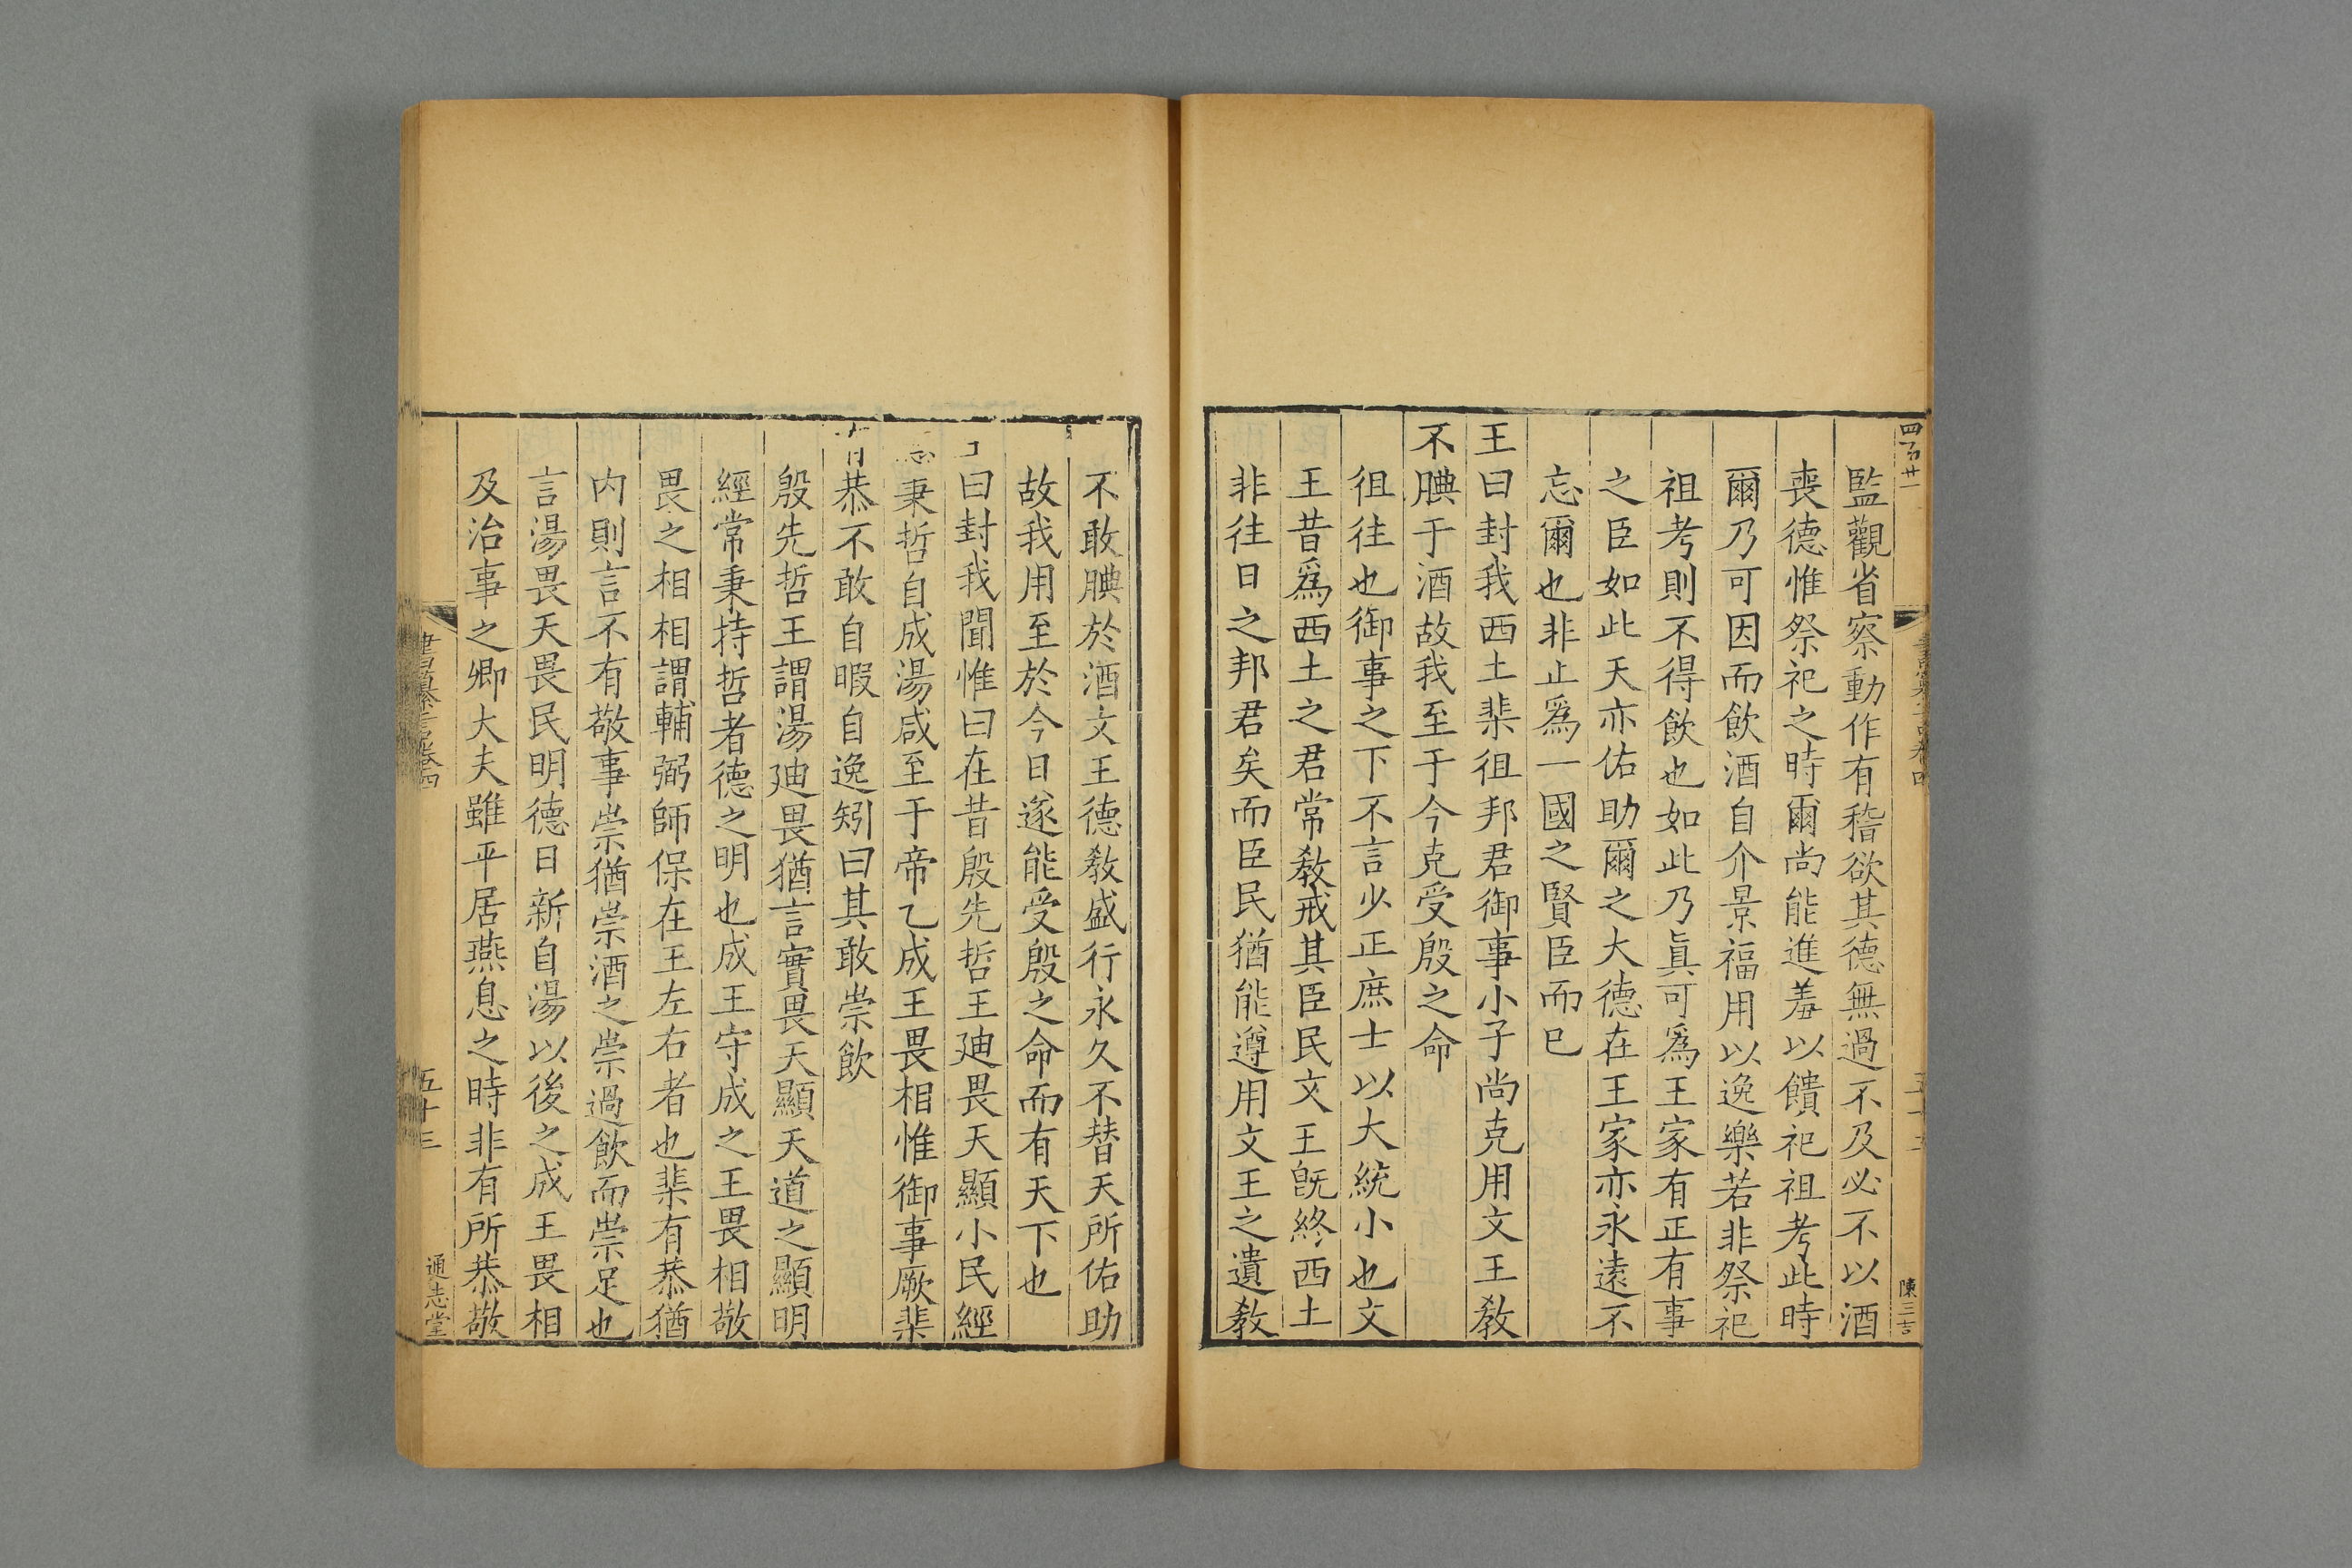 四百廿一
陳三吉
監觀省察動作有稽欲其德無過不及必不以酒
喪德惟祭祀之時爾尚能進羞以饋祀祖考此時
爾乃可因而飲酒自介景福用以逸樂若非祭祀
祖考則不得飲也如此乃眞可爲王家有正有事
之臣如此天亦佑助爾之大德在王家亦永遠不
忘爾也非止爲一國之賢臣而已
王曰封我西土棐徂邦君御事小子尚克用文王敎
不腆于酒故我至于今克受殷之命
徂往也御事之下不言少正庶士以大統小也文
王昔爲西土之君常敎戒其臣民文王旣終西土
非往日之邦君矣而臣民猶能遵用文王之遺敎
不敢腆於酒文王德敎盛行永久不替天所佑助
故我用至於今日遂能受殷之命而有天下也
曰封我聞惟曰在昔殷先哲王廸畏天顯小民經
秉哲自成湯咸至于帝乙成王畏相惟御事厥棐
恭不敢自暇自逸矧曰其敢崇飲
殷先哲王謂湯廸畏猶言實畏天顯天道之顯明
經常秉持哲者德之明也成王守成之王畏相敬
畏之相相謂輔弼師保在王左右者也棐有恭猶
内則言不有敬事崇猶崇酒之崇過飲而崇足也
言湯畏天畏民明德日新自湯以後之成王畏相
及治事之卿大夫雖平居燕息之時非有所恭敬
書纂言卷四
五十三
通志堂